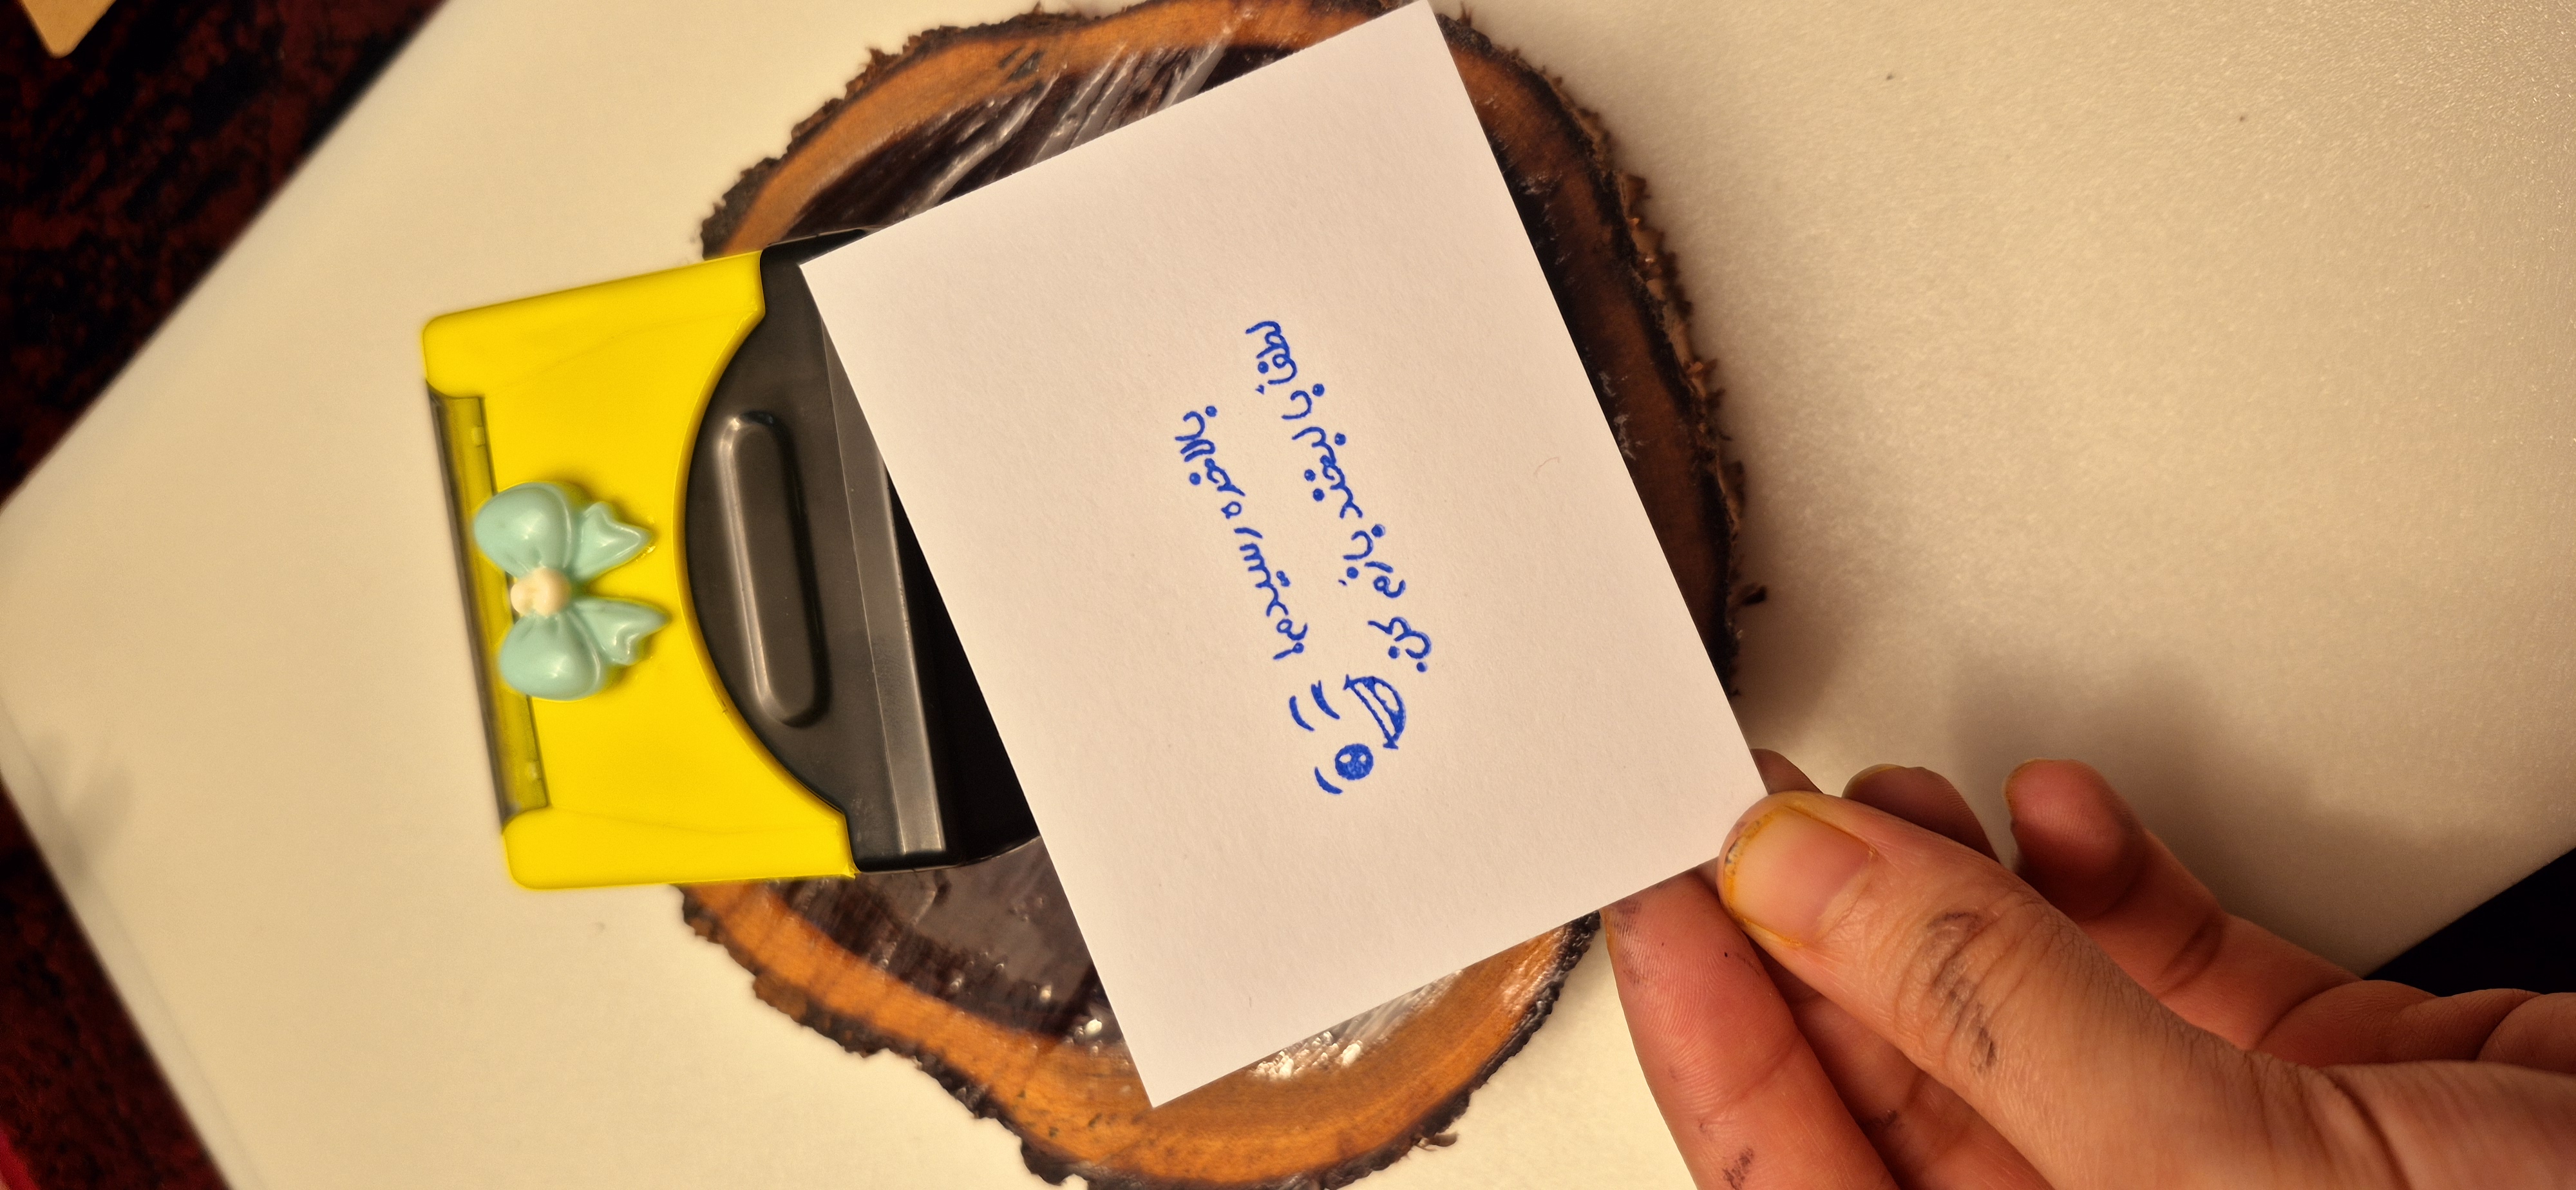 بالاخره رسیدم!
لطفا با لبخند بازم کن